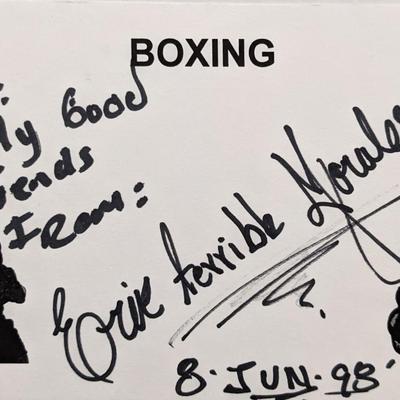 BOXING
:
ly Good
iends
From:
Erik terrible Morales
8. JUN. 98.